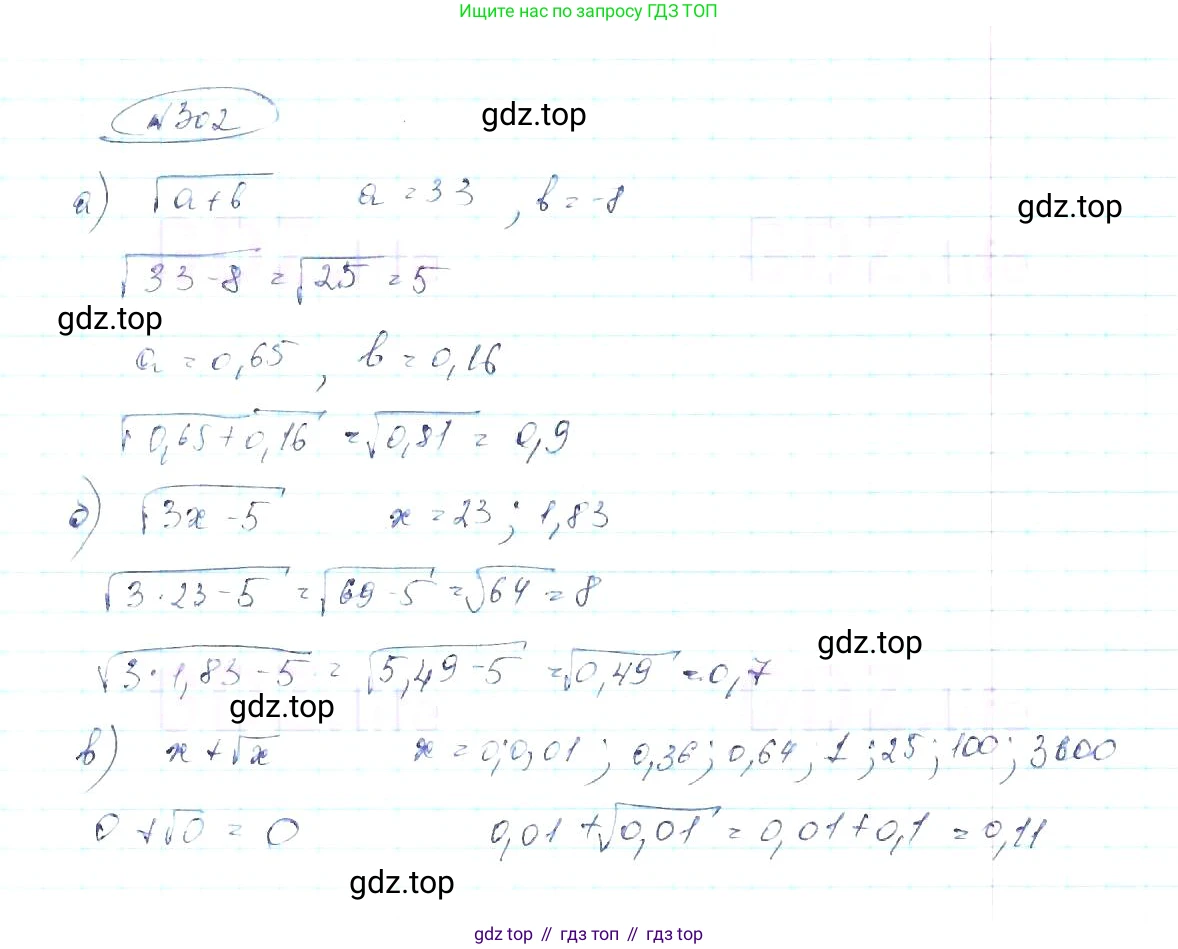 Ищите нас по запросу ГДЗ ТОП
№302
gdz.top
а) √(a+b) a=33, b=-8
gdz.top
√(33-8) = √25 = 5
gdz.top
a=0,65, b=0,16
√(0,65+0,16) = √0,81 = 0,9
б) √(3x-5) x=23; 1,83
√(3·23-5) = √(69-5) = √64 = 8
gdz.top
√(3·1,83-5) = √(5,49-5) = √0,49 = 0,7
gdz.top
в) x+√x x=0; 0,01; 0,36; 0,64; 1; 25; 100; 3600
0+√0 = 0 0,01+√0,01 = 0,01+0,1 = 0,11
gdz.top
gdz топ // гдз топ // гдз top